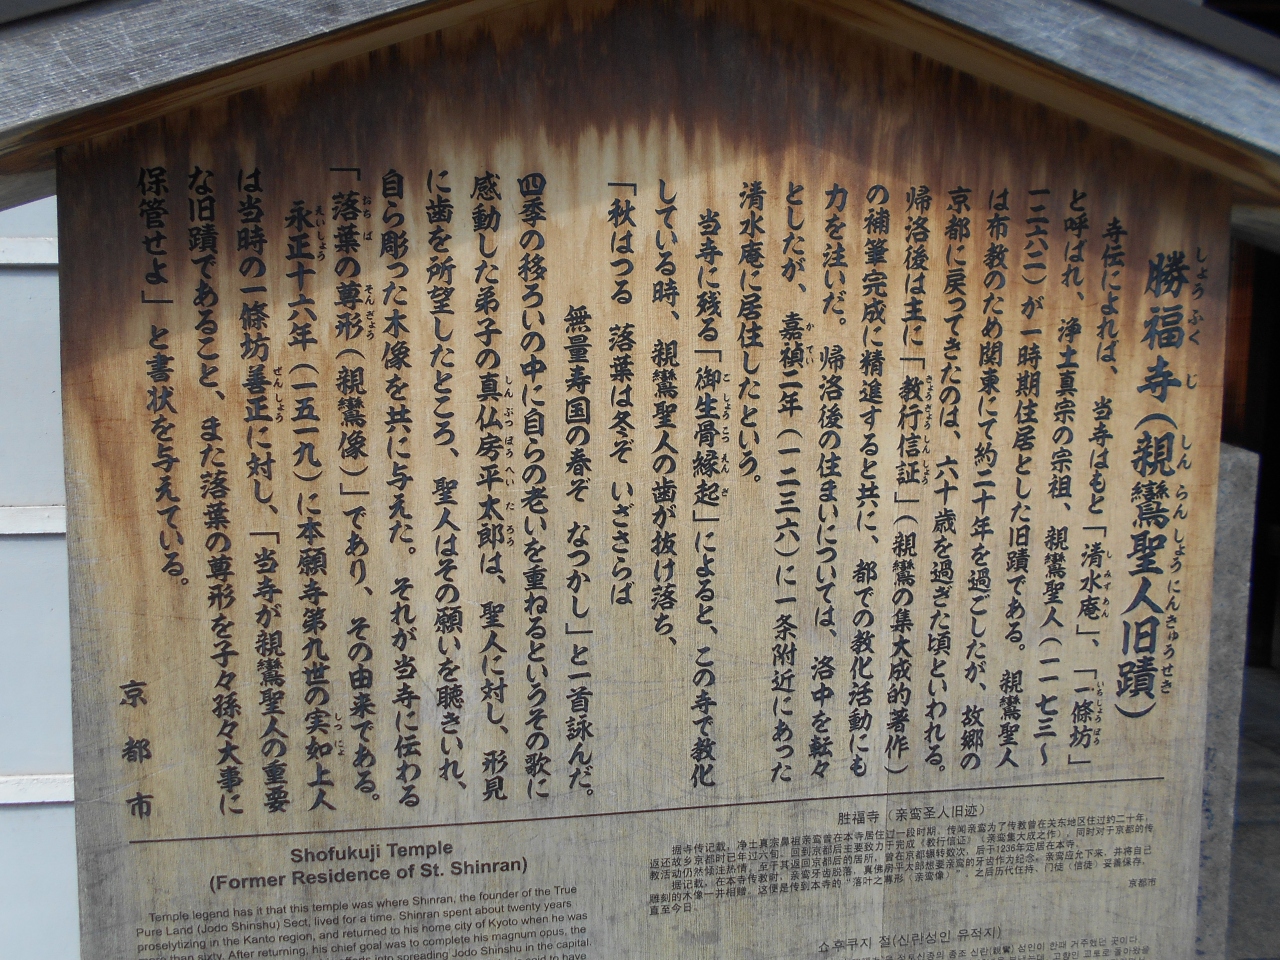 勝福寺（親鸞聖人旧蹟）
しょうふくじ
しんらんしょうにんきゅうせき
寺伝によれば、当寺はもと「清水庵」、「一條坊」
しみずあん
いちじょうぼう
と呼ばれ、浄土真宗の宗祖、親鸞聖人（一一七三～
一二六二）が一時期住居とした旧蹟である。親鸞聖人
は布教のため関東にて約二十年を過ごしたが、故郷の
京都に戻ってきたのは、六十歳を過ぎた頃といわれる。
帰洛後は主に「教行信証」（親鸞の集大成的著作）
きょうぎょうしんしょう
の補筆完成に精進すると共に、都での教化活動にも
力を注いだ。帰洛後の住まいについては、洛中を転々
としたが、嘉禎二年（一二三六）に一条附近にあった
かてい
清水庵に居住したという。
当寺に残る「御生骨縁起」によると、この寺で教化
こしょうこつえんぎ
している時、親鸞聖人の歯が抜け落ち、
「秋はつる　落葉は冬ぞ　いざさらば
無量寿国の春ぞ　なつかし」と一首詠んだ。
四季の移ろいの中に自らの老いを重ねるというその歌に
感動した弟子の真仏房平太郎は、聖人に対し、形見
しんぶつぼうへいたろう
に歯を所望したところ、聖人はその願いを聴きいれ、
自ら彫った木像を共に与えた。それが当寺に伝わる
「落葉の尊形（親鸞像）」であり、その由来である。
おちば
そんぎょう
永正十六年（一五一九）に本願寺第九世の実如上人
えいしょう
じつにょ
は当時の一條坊善正に対し、「当寺が親鸞聖人の重要
ぜんしょう
な旧蹟であること、また落葉の尊形を子々孫々大事に
保管せよ」と書状を与えている。
京都市
Shofukuji Temple
(Former Residence of St. Shinran)
Temple legend has it that this temple was where Shinran, the founder of the True
Pure Land (Jodo Shinshu) Sect, lived for a time. Shinran spent about twenty years
proselytizing in the Kanto region, and returned to his home city of Kyoto when he was
more than sixty. After returning, his chief goal was to complete his magnum opus, the
efforts into spreading Jodo Shinshu in the capital.
said to have
胜福寺（亲鸾圣人旧迹）
据寺传记载，净土真宗鼻祖亲鸾曾在本寺居住过一段时期。传闻亲鸾为了传教曾在关东地区住过约二十年，
返还故乡京都时已年过六旬。回到京都后主要致力于完成《教行信证》（亲鸾集大成之作），同时对于京都的传
教活动仍然倾注热情。至于其返回京都后的居所，曾在京都辗转数次，后于1236年定居在本寺。
据记载，在本寺传教时，亲鸾牙齿脱落，真佛房平太郎想要亲鸾的牙齿作为纪念，亲鸾应允下来，并将自己
雕刻的木像一并相赠。这便是传到本寺的“落叶之尊形（亲鸾像）”，之后历代住持、门徒（信徒）妥善保存，
直至今日。
京都市
쇼후쿠지 절(신란성인 유적지)